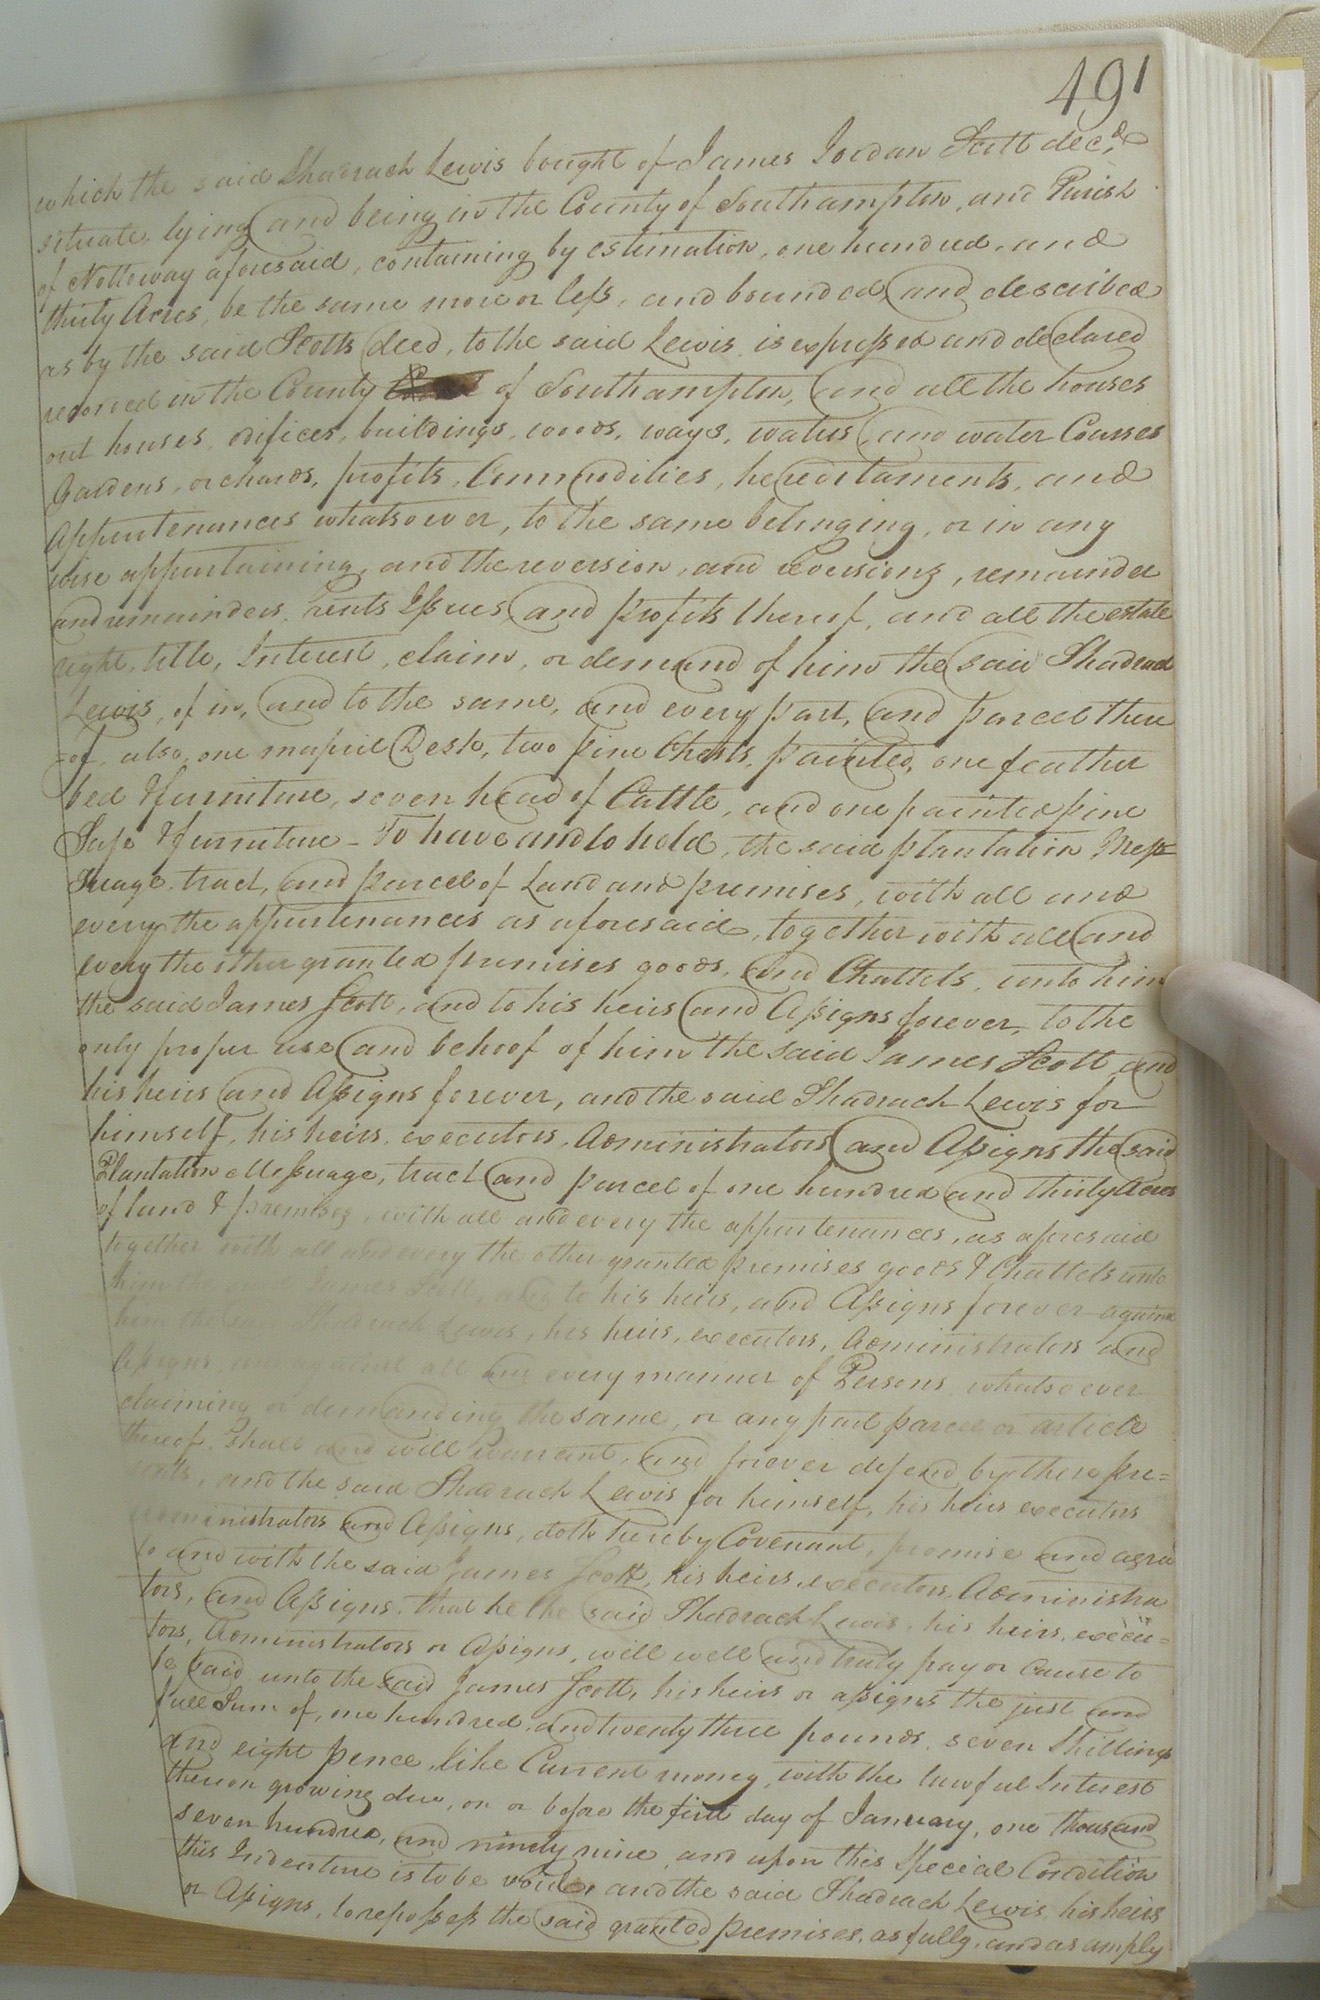 491
which the said Shadrach Lewis bought of James Jordan Scott decd.
situate, lying and being in the County of Southampton, and Parish
of Nottoway aforesaid, containing by estimation, one hundred, and
thirty Acres, be the same more or less, and bounded, and described
as by the said Scotts deed, to the said Lewis, is expressed and declared
recorded in the County of Southampton, and all the houses
out houses, edifices, buildings, woods, ways, waters, and water Courses
Gardens, orchards, profits, Commodities, hereditaments, and
Appurtenances whatsoever, to the same belonging, or in any
wise appurtaining, and the reversion, and reversions, remainder
and remainders, rents Issues and profits thereof, and all the estate
right, title, Interest, claim, or demand of him the said Shadrach
Lewis, of in, and to the same, and every part, and parcel there
=of, also, one Desk, two pine Chests, painted, one feather
bed & furniture, seven head of Cattle, and one painted pine
Safe & furniture - To have and to hold, the said plantation, Mess=
suage, tract, and parcel of Land and premises, with all and
every the appurtenances as aforesaid, together with all and
every the other granted premises goods, and Chattels, unto him
the said James Scott, and to his heirs and Assigns forever, to the
only proper use and behoof of him the said James Scott and
his heirs and Assigns forever, and the said Shadrach Lewis for
himself, his heirs, executors, Administrators and Assigns the said
Plantation Messuage, tract and parcel of one hundred and thirty Acres
of land & premises, with all and every the appurtenances, as aforesaid
together with all and every the other granted premises goods & Chattels unto
him the said James Scott, and to his heirs, and Assigns forever against
him the said Shadrach Lewis, his heirs, executors, Administrators and
Assigns, and against all and every manner of Persons whatsoever
claiming or demanding the same, or any part parcel or article
thereof, shall and will Warrant, and forever defend by these pre=
sents, and the said Shadrach Lewis for himself, his heirs executors
administrators and Assigns, doth hereby Covenant, promise and agree
to and with the said James Scott, his heirs, executors, Administra
tors, and Assigns, that he the said Shadrach Lewis, his heirs, execu=
tors, Administrators or Assigns, will well and truly pay or cause to
be paid unto the said James Scott, his heirs or assigns the just and
full Sum of, one hundred, and twenty three pounds, seven Shillings
and eight pence, like Current money, with the lawful Interest
thereon growing due, on or before the first day of January, one thousand
seven hundred, and ninety nine, and upon this Special Condition
this Indenture is to be void, and the said Shadrach Lewis, his heirs
or Assigns, to repossess the said granted premises, as fully, and as amply